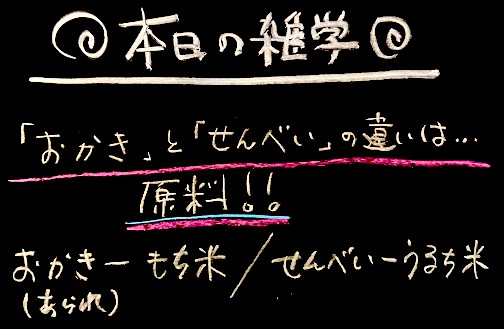 本日の雑学
「おかき」と「せんべい」の違いは…
原料!!
おかきーもち米/せんべいーうるち米
(あられ)